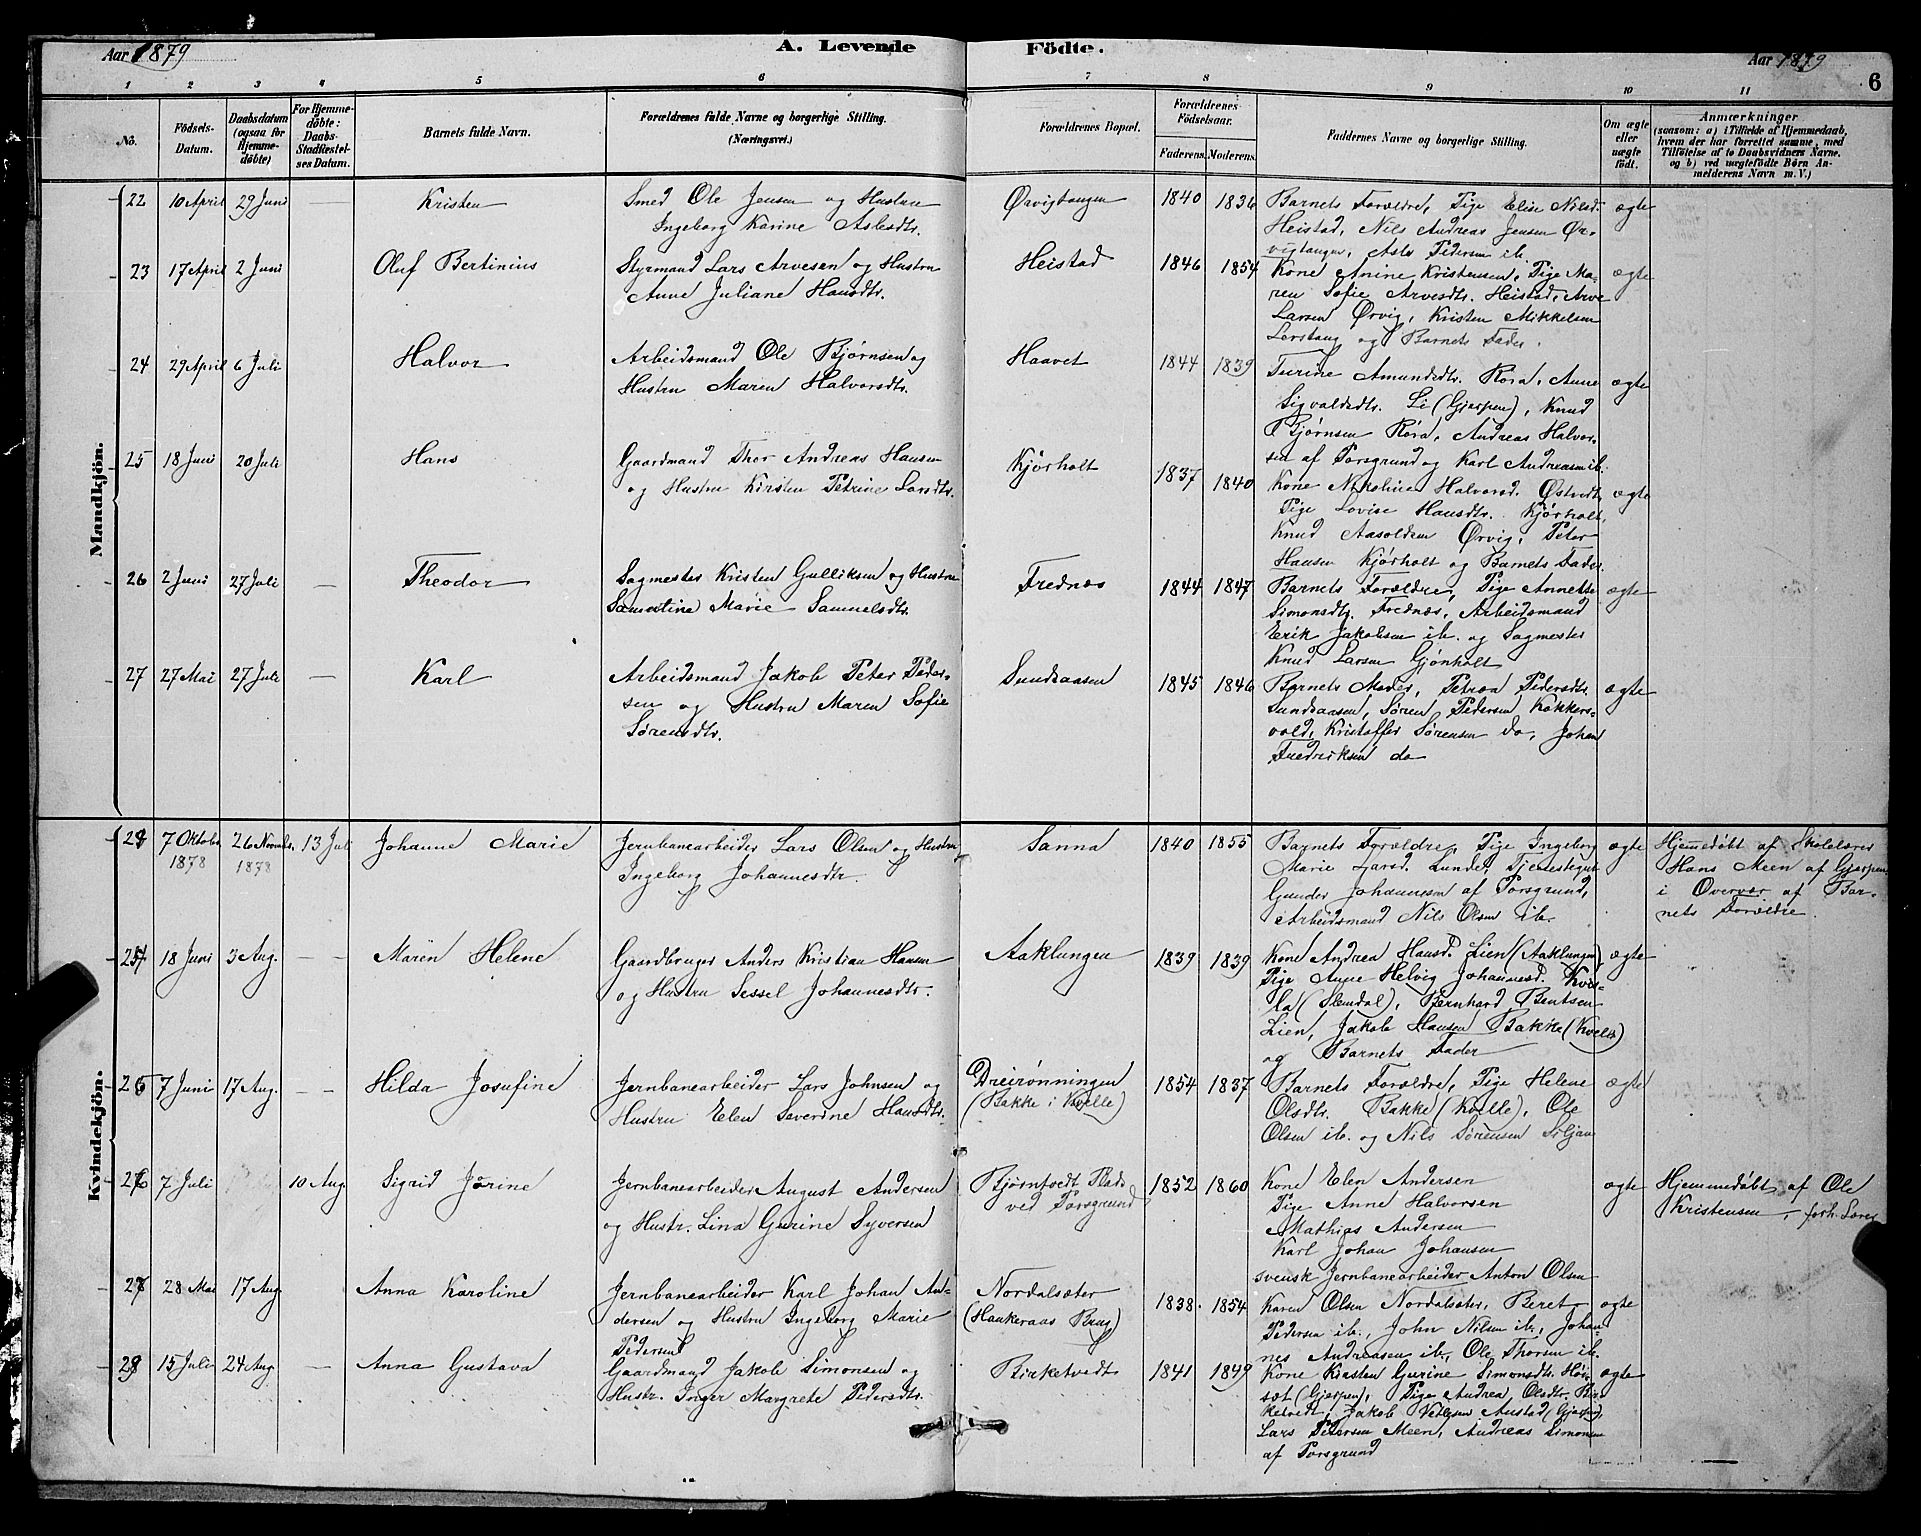 Aar 1879
A. Levende Födte.
Aar 1879
6
1 2 3 4 5 6 7 8 9 10 11
No.
Födsels-Datum.
Daabsdatum (ogsaa for Hjemmedöbte)
For Hjemmedöbte: Daabs-Stadfæstelses Datum.
Barnets fulde Navn.
Forældrenes fulde Navne og borgerlige Stilling.
(Næringsvei.)
Forældrenes Bopæl.
Forældrenes Födselsaar.
Faderens. Moderens.
Faddernes Navne og borgerlige Stilling.
Om ægte eller uægte födt.
Anmærkninger
(saasom: a) i Tilfælde af Hjemmedaab,
hvem der har forrettet samme, med
Tilföielse af to Daabsvidners Navne.
og b) ved uægtefödte Börn An-
melderens Navn m. V.)
Mandkjön.
22 10 April 29 Juni — Kristen
Smed Ole Jensen og Hustru
Ingeborg Karine Aslesdtr.
Ørvigtangen 1840 1836
Barnets Forældre, Pige Elise Nilsd.
Heistad, Nils Andreas Jensen Ør-
vigtangen, Asle Pedersen ib.
ægte
23 17 April 2 Juni Oluf Bertinius
Styrmand Lars Arvesen og Hustru
Anne Juliane Hansdtr.
Heistad 1846 1854
Kone Anine Kristensen, Pige Ma-
ren Sofie Arvesdtr. Heistad, Arve
Larsen Ørvig, Kristen Mikkelsen
Lerstang og Barnets Fader.
ægte
24 29 April 6 Juli Halvor
Arbeidsmand Ole Bjørnsen og
Hustru Maren Halvorsdtr.
Haavet 1844 1839
Turine Amundsdtr. Røra, Anne
Sigvaldsdtr. Li (Gjerpen), Knud
Bjørnsen Röra, Andreas Halvor-
sen af Porsgrund og Karl Andreasen ib.
ægte
25 18 Juni 20 Juli Hans
Gaardmand Thor Andreas Hansen
og Hustru Kirsten Petrine Larsdtr.
Kjørholt 1837 1840
Kone Nikoline Halvorsd. Østvedt,
Pige Lovise Hansdtr. Kjørholt,
Knud Aasoldsen Ørvig, Peter
Hansen Kjørholt og Barnets Fader.
ægte
26 2 Juni 27 Juli — Theodor
Sagmester Kristen Gulliksen og Hustru
Samutine Marie Samuelsdtr.
Frednæs 1844 1847
Barnets Forældre, Pige Annette
Simonsdtr. Frednæs, Arbeidsmand
Erik Jakobsen ib. og Sagmester
Knud Larsen Gjönholt
ægte
27 27 Mai 27 Juli — Karl
Arbeidsmand Jakob Peter Peder-
sen og Hustru Maren Sofie
Sørensdtr.
Sundsaasen 1845 1846
Barnets Moder, Petrea Pedersdtr.
Sundsaasen, Søren Pedersen Kokkers-
vold, Kristoffer Sørensen do, Johan
Fredriksen do
ægte
Kvindekjön.
7 Oktober 1878 26 Novemb. 1878 13 Juli Johanne Marie
Jernbanearbeider Lars Olsen og Hustru
Ingeborg Johannesdtr.
Sanna 1840 1855
Barnets Forældre, Pige Ingeborg
Marie Larsd. Lunde, Tjenestegut
Gunder Johannesen af Porsgrund,
Arbeidsmand Nils Olsen ib.
ægte
Hjemmedöbt af Skolelærer
Hans Meen af Gjerpen
i Overvær af Bar-
nets Forældre.
18 Juni 3 Aug. — Maren Helene
Gaardbruger Anders Kristian Hansen
og Hustru Sessel Johannesdtr.
Aaklungen 1839 1839
Kone Andrea Hansd. Lien (Aaklungen)
Pige Anne Helvig Johannesd. Kvis-
la (Slemdal), Bernhard Bentsen
Lien, Jakob Hansen Bakke (Kvelle)
og Barnets Fader
ægte
26 7 Juni 17 Aug. — Hilda Josefine
Jernbanearbeider Lars Johnsen og
Hustru Elen Severine Hansdtr.
Dreirønningen
(Bakke i Kvelle) 1854 1837
Barnets Forældre, Pige Helene
Olsdtr. Bakke (Kvelle), Ole
Olsen ib. og Nils Sørensen Siljan
ægte
7 Juli 10 Aug Sigrid Jørine
Jernbanearbeider August Andersen
og Hustr. Lina Gurine Syversen
Bjørntvedt Plads
ved Porsgrund 1852 1860
Kone Elen Andersen
Pige Anne Halvorsen
Mathias Andersen
Karl Johan Johansen
ægte
Hjemmedöbt af Ole
Kristensen, forh. Lærer
28 Mai 17 Aug. Anna Karoline
Jernbanearbeider Karl Johan An-
dersen og Hustru Ingeborg Marie
Pedersen
Nordalsæter
(Haukeraas Brug) 1838 1854
svensk Jernbanearbeider Anton Olsen
Karen Olsen Nordalsæter, Beret
Pedersen ib., John Nilsen ib., Johan-
nes Andreasen ib., Ole Thorsen ib.
ægte
15 Juli 24 Aug. — Anna Gustava
Gaardmand Jakob Simonsen og
Hustr. Inger Margrete Pedersdtr.
Birketvedt 1841 1849
Kone Kirsten Gurine Simonsdtr. Høi-
sæt (Gjerpen), Pige Andrea Olsdtr. Bir-
ketvedt, Jakob Austad (Gjerpen),
Lars Pedersen Meen, Andreas Simonsen
af Porsgrund
ægte